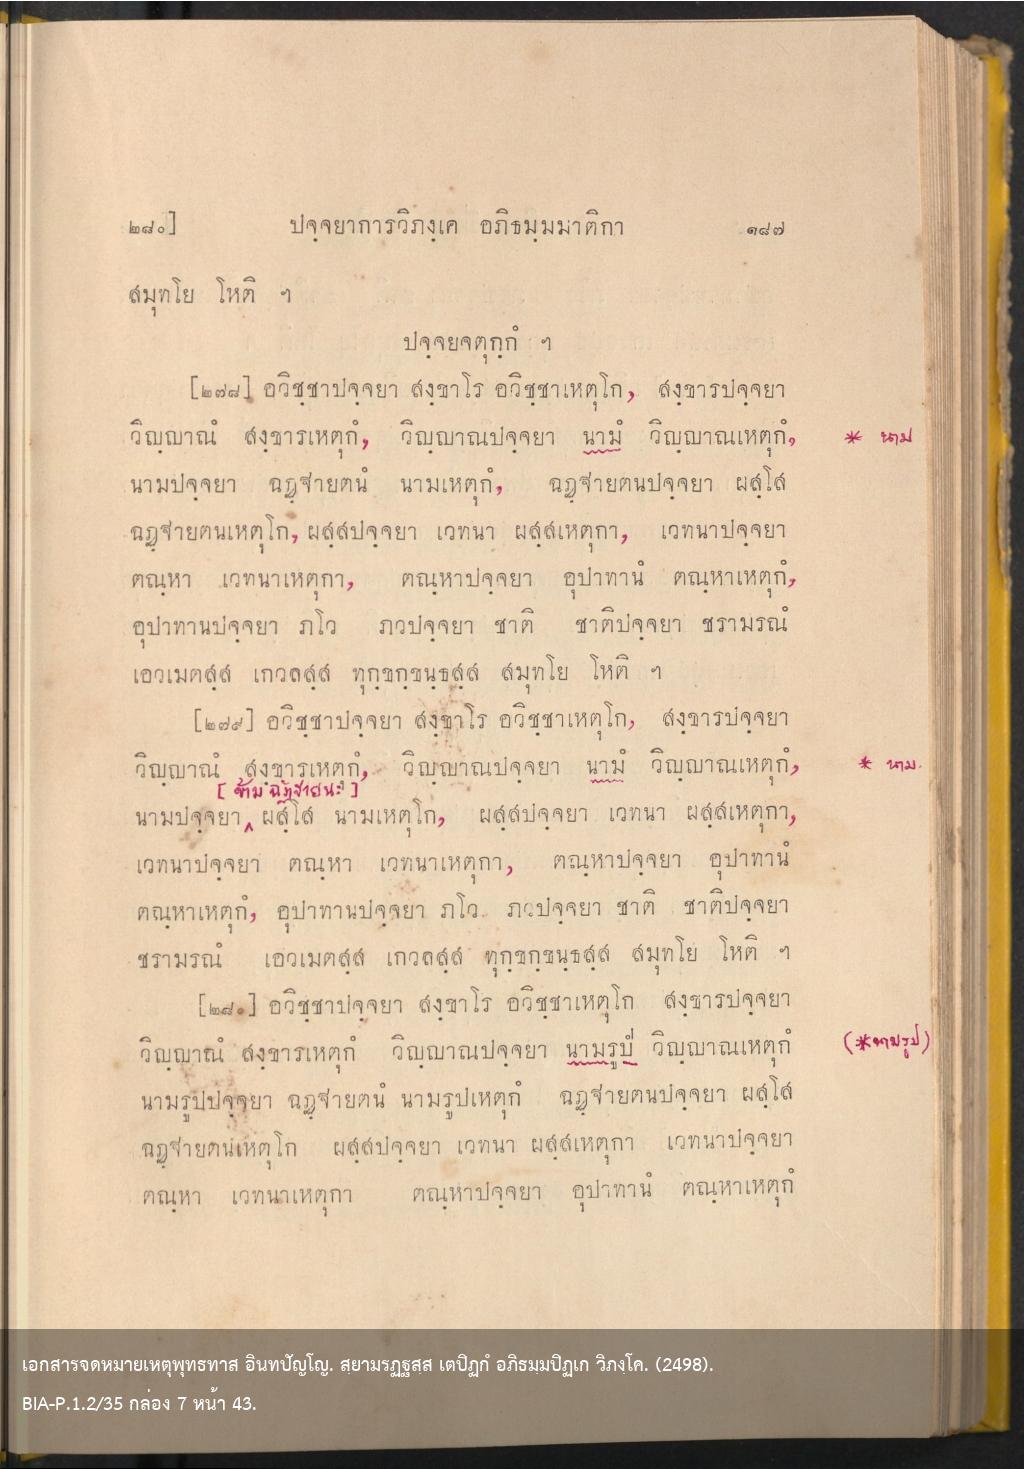 ๒๘๐] ปจฺจยาการวิภงฺเค อภิธมฺมมาติกา ๑๘๗
สมุทโย โหติ ฯ
ปจฺจยจตุกฺกํ ฯ
[๒๗๘] อวิชฺชาปจฺจยา สงฺขาโร อวิชฺชาเหตุโก, สงฺขารปจฺจยา
วิญฺญาณํ สงฺขารเหตุกํ, วิญฺญาณปจฺจยา นามํ วิญฺญาณเหตุกํ, * นาม
นามปจฺจยา ฉฏฺฐายตนํ นามเหตุกํ, ฉฏฺฐายตนปจฺจยา ผสฺโส
ฉฏฺฐายตนเหตุโก, ผสฺสปจฺจยา เวทนา ผสฺสเหตุกา, เวทนาปจฺจยา
ตณฺหา เวทนาเหตุกา, ตณฺหาปจฺจยา อุปาทานํ ตณฺหาเหตุกํ,
อุปาทานปจฺจยา ภโว ภวปจฺจยา ชาติ ชาติปจฺจยา ชรามรณํ
เอวเมตสฺส เกวลสฺส ทุกฺขกฺขนฺธสฺส สมุทโย โหติ ฯ
[๒๗๙] อวิชฺชาปจฺจยา สงฺขาโร อวิชฺชาเหตุโก, สงฺขารปจฺจยา
วิญฺญาณํ สงฺขารเหตุกํ, วิญฺญาณปจฺจยา นามํ วิญฺญาณเหตุกํ, * นาม
[ข้าม ]
นามปจฺจยา ผสฺโส นามเหตุโก, ผสฺสปจฺจยา เวทนา ผสฺสเหตุกา,
เวทนาปจฺจยา ตณฺหา เวทนาเหตุกา, ตณฺหาปจฺจยา อุปาทานํ
ตณฺหาเหตุกํ, อุปาทานปจฺจยา ภโว ภวปจฺจยา ชาติ ชาติปจฺจยา
ชรามรณํ เอวเมตสฺส เกวลสฺส ทุกฺขกฺขนฺธสฺส สมุทโย โหติ ฯ
[๒๘๐] อวิชฺชาปจฺจยา สงฺขาโร อวิชฺชาเหตุโก สงฺขารปจฺจยา
วิญฺญาณํ สงฺขารเหตุกํ วิญฺญาณปจฺจยา นามรูปํ วิญฺญาณเหตุกํ (*นามรูป)
นามรูปปจฺจยา ฉฏฺฐายตนํ นามรูปเหตุกํ ฉฏฺฐายตนปจฺจยา ผสฺโส
ฉฏฺฐายตนเหตุโก ผสฺสปจฺจยา เวทนา ผสฺสเหตุกา เวทนาปจฺจยา
ตณฺหา เวทนาเหตุกา ตณฺหาปจฺจยา อุปาทานํ ตณฺหาเหตุกํ
เอกสารจดหมายเหตุพุทธทาส อินทปัญโญ. สฺยามรฏฺฐสฺส เตปิฏกํ อภิธมฺมปิฏเก วิภงฺโค. (2498).
BIA-P.1.2/35 กล่อง 7 หน้า 43.